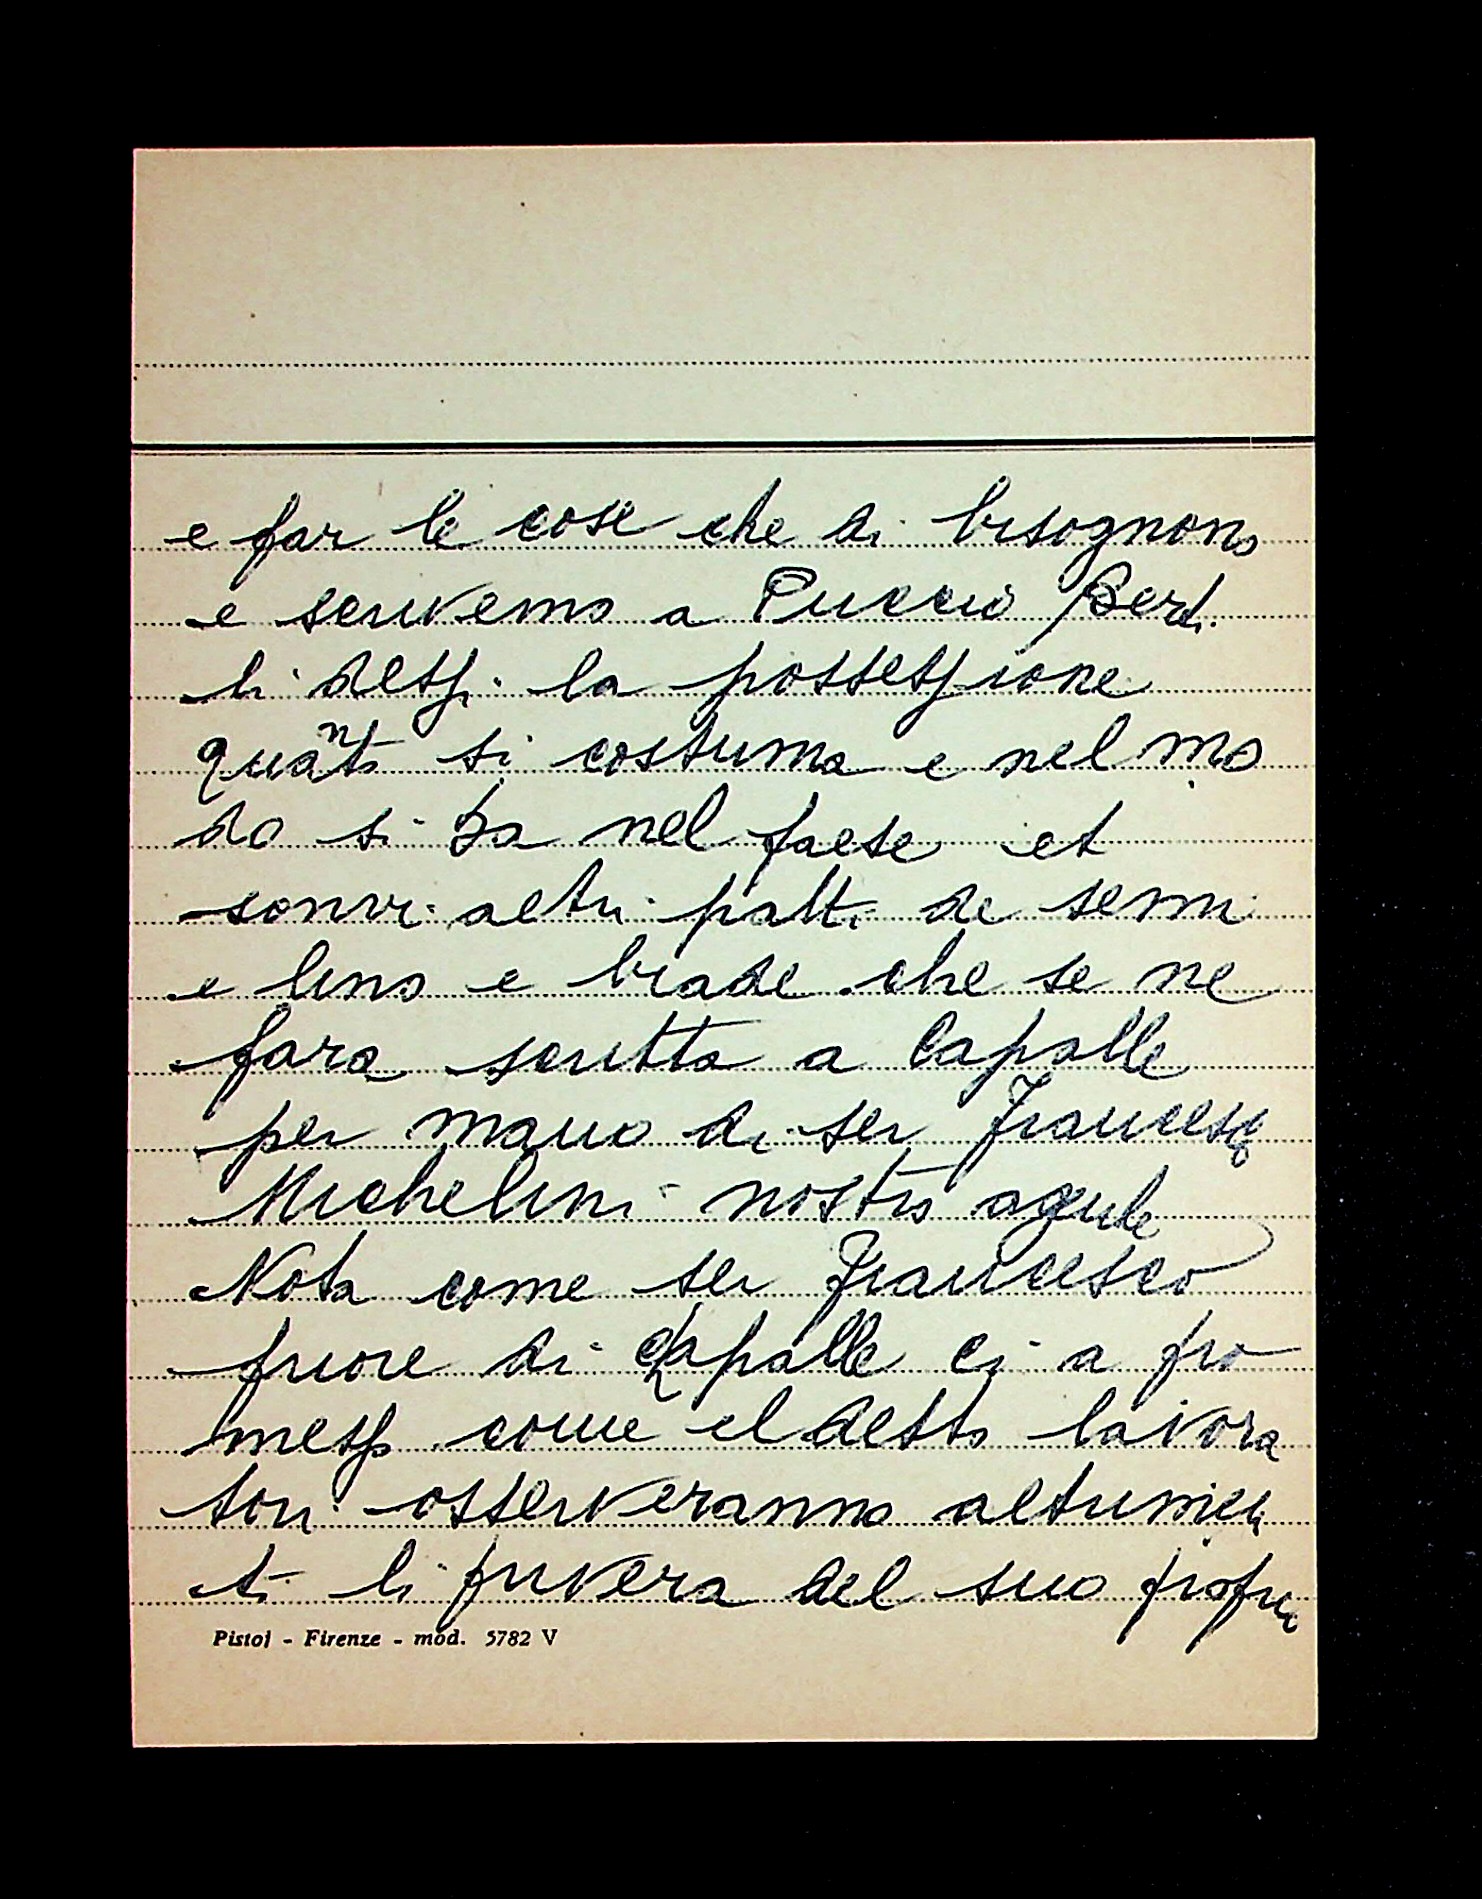 e far le cose che di bisognono
e scrivemo a Puccio Berti
li dessi la possessione
quanto si costuma e nel mo
do si fa nel paese et
sonvi altri patti de semi
e lino e biade che se ne
fara scritta a Capalle
per mano di ser Francesco
Michelini nostro agente
Nota come ser Francesco
priore di Capalle ci a pro
messo come el detto lavora
tori osserveranno altrimen
ti li privera del suo propri
Pistoj - Firenze - mod. 5782 V